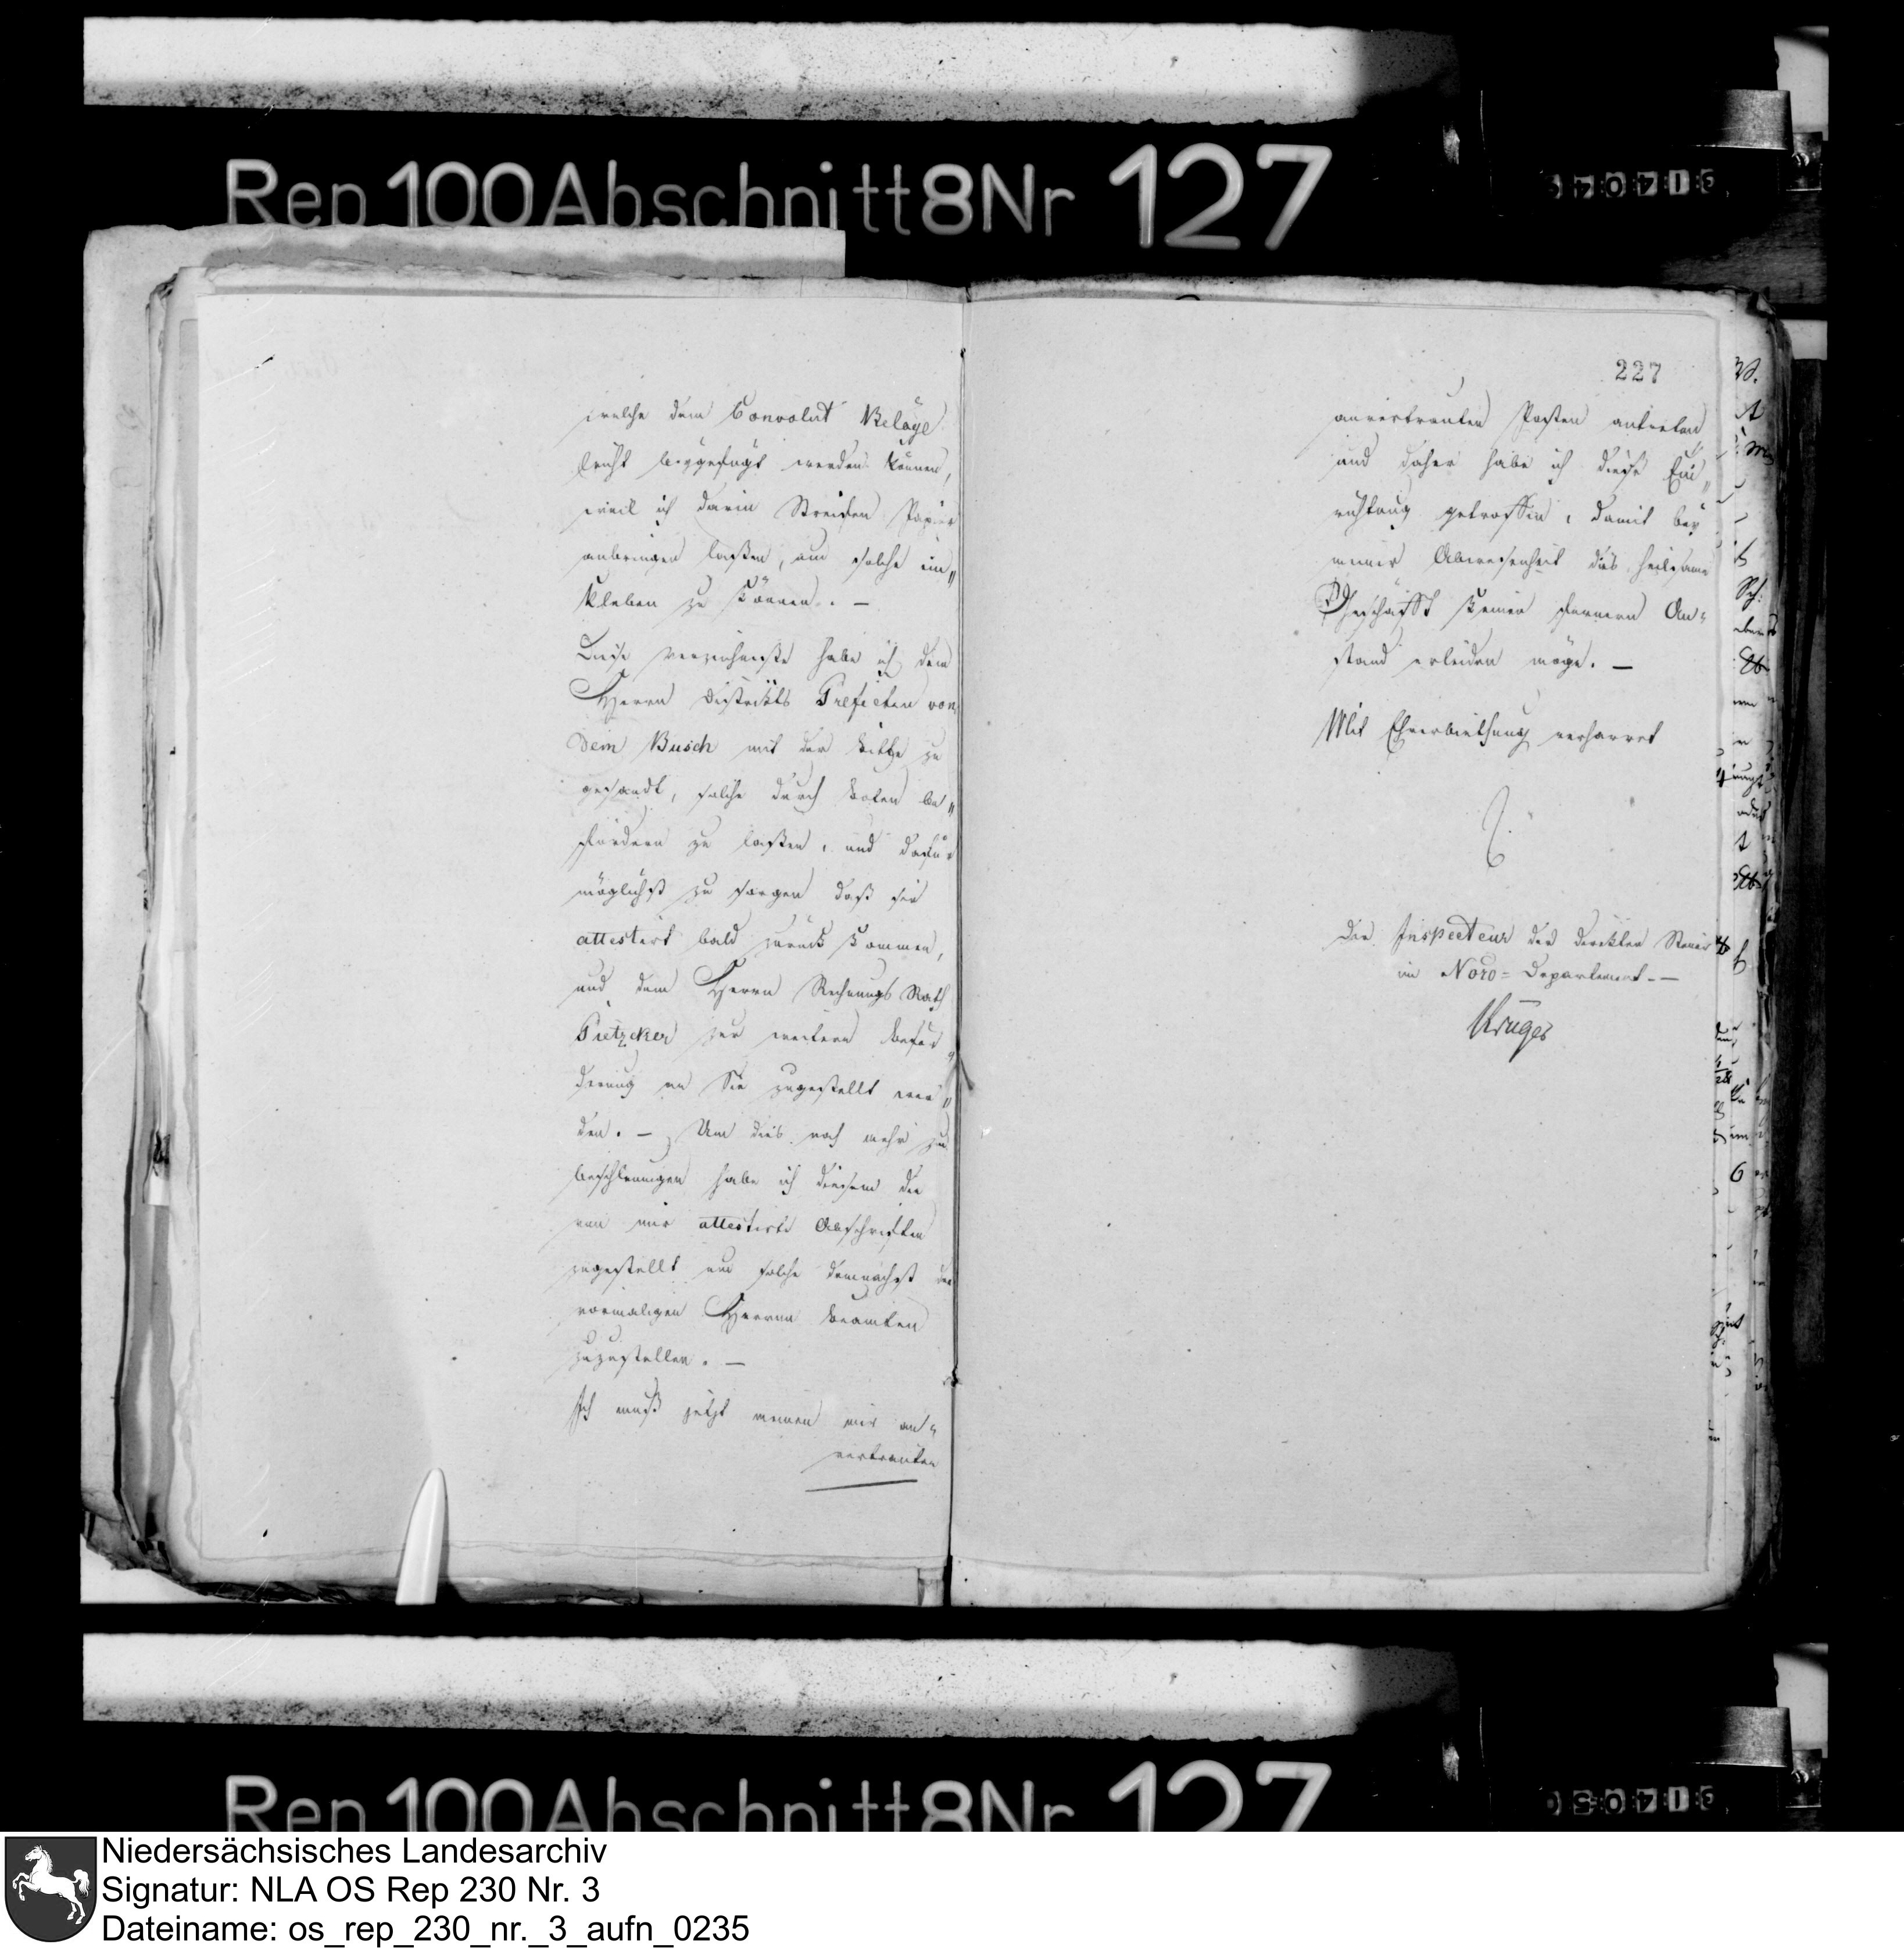 Rep 100 Abschnitt 8 Nr 127
welche dem Convolut Beläge
leicht beygefügt werden können,
weil ich darin Streifen Papier
anbringen laßen, um solche ein„
kleben zu können. —
Diese Verzeichniße habe ich dem
Herrn Distrikts Prefecten von
dem Busch mit der Bitte zu
gesandt, solche durch Boten be„
fördern zu laßen, und dafür
möglichst zu sorgen daß sie
attestirt bald zurück kommen,
und dem Herrn Rechnungs Rath
Pietzcker zur weitern Beför
derung an Sie zugestellt wer„
den. — Um dies noch mehr zu
beschleunigen habe ich diesem die
von mir attestirte Abschriften
zugestellt um solche demnächst den
vormaligen Herrn Beamten
zuzustellen. —
Ich muß jetzt meinen mir an„
vertrauten
227
anvertrauten Posten antreten
und daher habe ich diese Ein„
richtung getroffen, damit bey
meiner Abwesenheit dies heilsame
Geschäfft keinen fernern An„
stand erleiden möge. —
Mit Ehrerbiethung verharret
Der Inspecteur der direkten Steuer
im Nord=Departement —
Krüger
Rep 100 Abschnitt 8 Nr 127
Niedersächsisches Landesarchiv
Signatur: NLA OS Rep 230 Nr. 3
Dateiname: os_rep_230_nr._3_aufn_0235